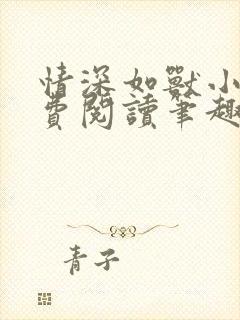 情深如獸小
費閱讀筆趣
青子